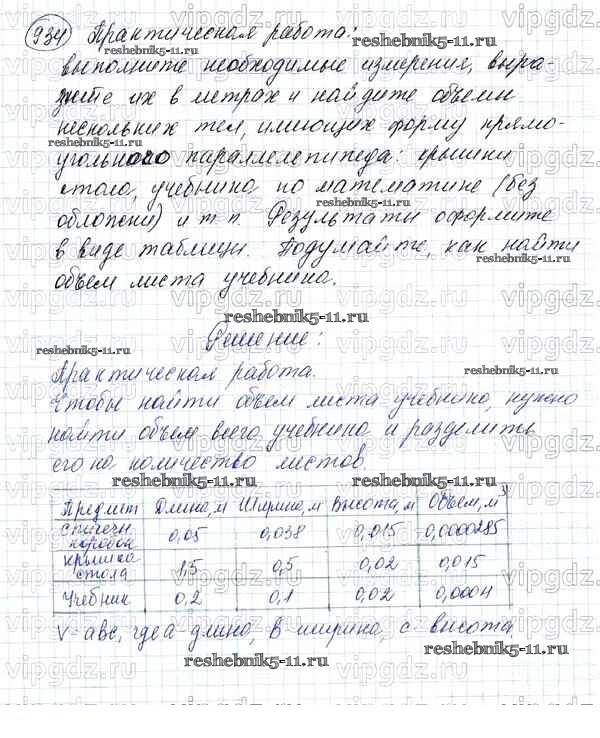 934 Практическая работа:
выполните необходимые измерения, выра-
зите их в метрах и найдите объемы
нескольких тел, имеющих форму прямо-
угольного параллелепипеда: крышки
стола, учебника по математике (без
обложки) и т.п. Результаты оформите
в виде таблицы. Подумайте, как найти
объем листа учебника.
Решение:
Практическая работа.
Чтобы найти объем листа учебника, нужно
найти объем всего учебника и разделить
его на количество листов.
Предмет Длина, м Ширина, м Высота, м Объем, м³
спичечн. коробок 0,05 0,038 0,015 0,0000285
крышка стола 1,5 0,5 0,02 0,015
Учебник 0,2 0,1 0,02 0,0004
V=abc, где a длина, в-ширина, с-высота.
reshebnik5-11.ru
vipgdz.ru